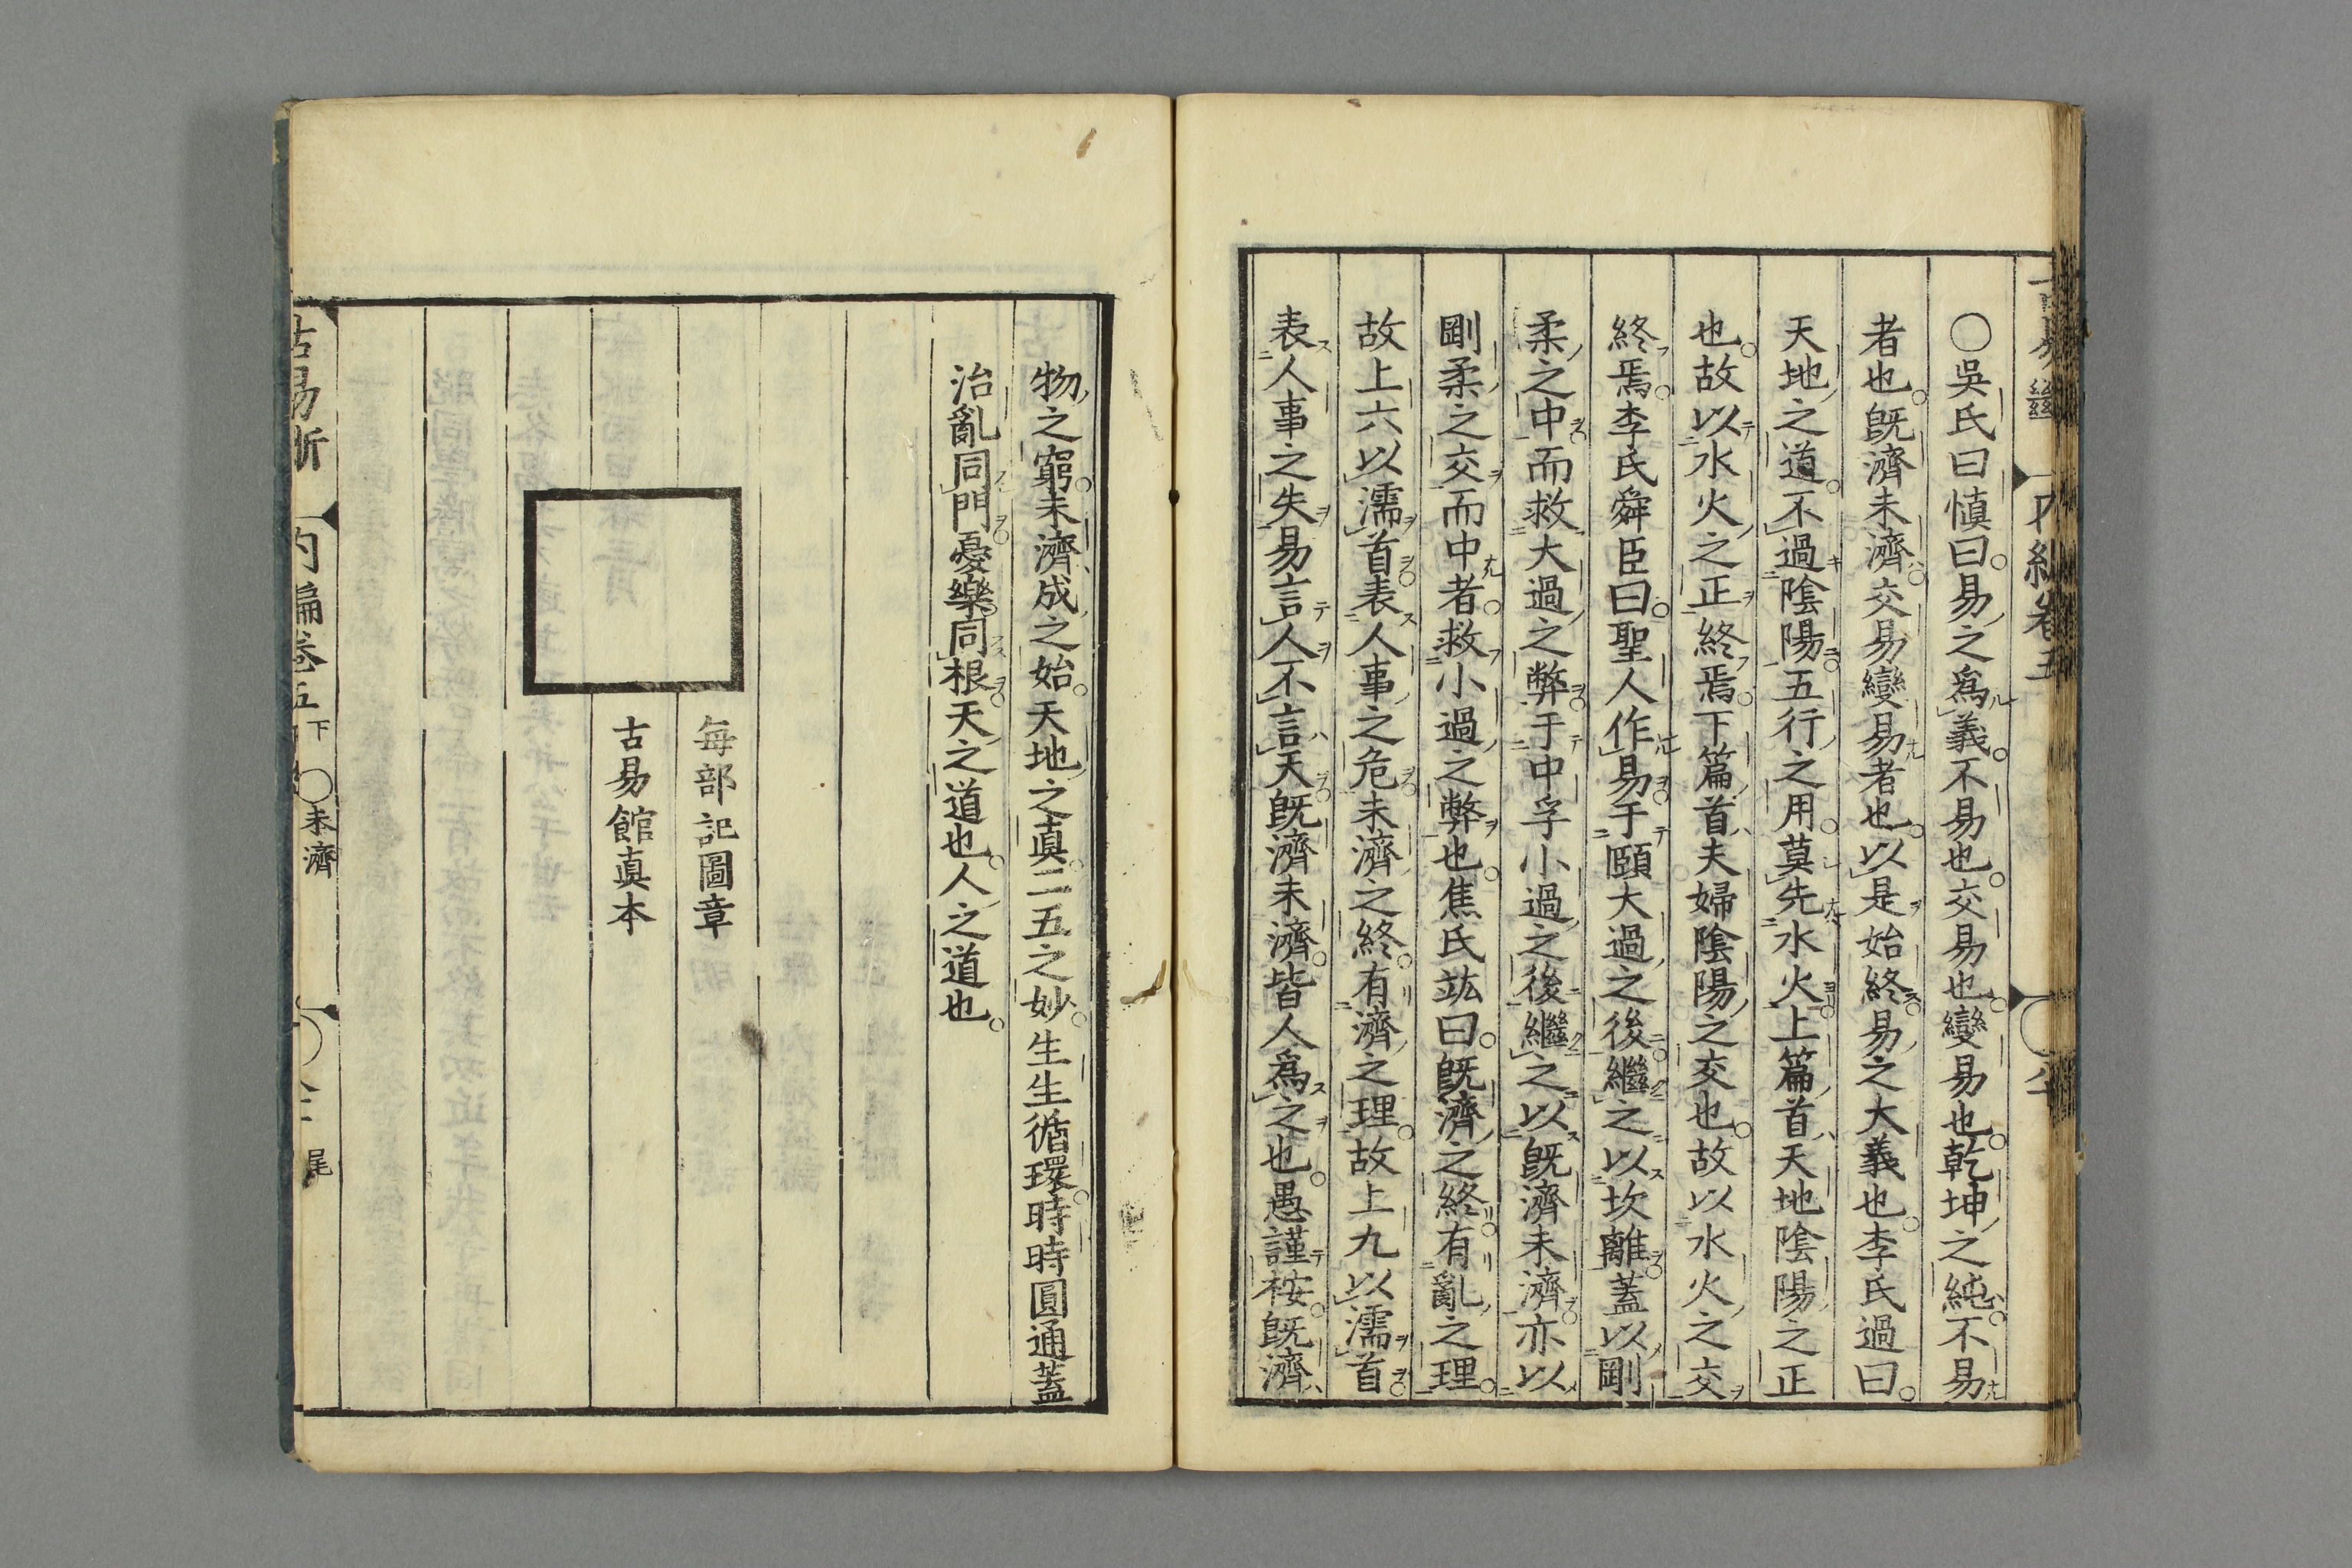 ○吳氏曰愼曰易之爲義不易也交易也變易也乾坤之純不易
者也旣濟未濟交易變易者也以是始終易之大義也李氏過曰
天地之道不過陰陽五行之用莫先水火上篇首天地陰陽之正
也故以水火之正終焉下篇首夫婦陰陽之交也故以水火之交
終焉李氏舜臣曰聖人作易于頤大過之後繼之以坎離蓋以剛
柔之中而救大過之弊于中孚小過之後繼之以旣濟未濟亦以
剛柔之交而中者救小過之弊也焦氏竑曰旣濟之終有亂之理
故上六以濡首表人事之危未濟之終有濟之理故上九以濡首
表人事之失易言人不言天旣濟未濟皆人爲之也愚謹桉旣濟
物之窮未濟成之始天地之眞二五之妙生生循環時時圓通蓋
治亂同門憂樂同根天之道也人之道也
每部記圖章
古易館眞本
古易斷 內編卷五下 ○未濟 尾